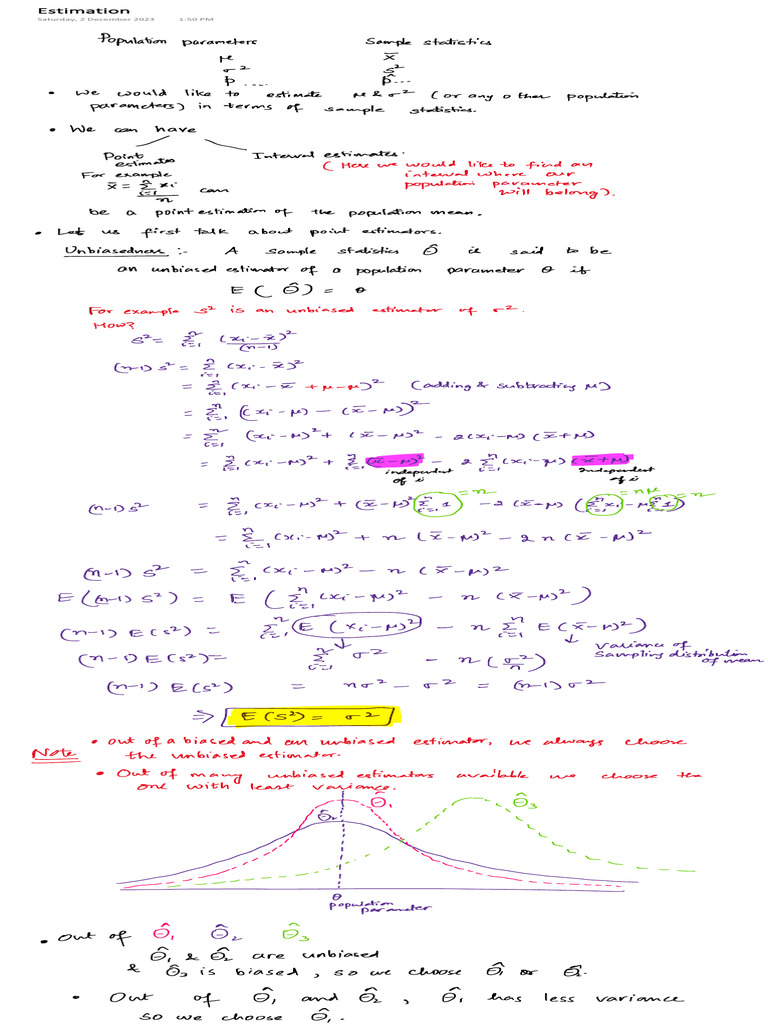 Estimation
Saturday, 2 December 2023 1:50 PM
Population parameters Sample statistics
μ x̄
σ² s²
p .... p̂ ...
• We would like to estimate μ & σ² (or any other population
parameters) in terms of sample statistics.
• We can have
Point estimates Interval estimates.
For example (Here we would like to find an
x̄ = Σᵢ₌₁ⁿ xᵢ / n can interval where our
population parameter
will belong).
be a point estimation of the population mean.
• Let us first talk about point estimators.
Unbiasedness :- A sample statistics Θ̂ is said to be
an unbiased estimator of a population parameter θ if
E(Θ̂) = θ
For example s² is an unbiased estimator of σ².
How?
s² = Σᵢ₌₁ⁿ (xᵢ - x̄)² / (n-1)
(n-1) s² = Σᵢ₌₁ⁿ (xᵢ - x̄)²
= Σᵢ₌₁ⁿ (xᵢ - x̄ + μ - μ)² (adding & subtracting μ)
= Σᵢ₌₁ⁿ ((xᵢ - μ) - (x̄ - μ))²
= Σᵢ₌₁ⁿ (xᵢ - μ)² + (x̄ - μ)² - 2(xᵢ - μ)(x̄ + μ)
= Σᵢ₌₁ⁿ (xᵢ - μ)² + Σᵢ₌₁ⁿ (x̄ - μ)² - 2 Σᵢ₌₁ⁿ (xᵢ - μ) (x̄ + μ)
independent of i independent of i
(n-1) s² = Σᵢ₌₁ⁿ (xᵢ - μ)² + (x̄ - μ)² Σᵢ₌₁ⁿ 1 = n - 2(x̄ - μ) (Σᵢ₌₁ⁿ xᵢ = nμ - μ Σᵢ₌₁ⁿ 1 = n)
= Σᵢ₌₁ⁿ (xᵢ - μ)² + n (x̄ - μ)² - 2n (x̄ - μ)²
(n-1) s² = Σᵢ₌₁ⁿ (xᵢ - μ)² - n (x̄ - μ)²
E((n-1) s²) = E (Σᵢ₌₁ⁿ (xᵢ - μ)² - n (x̄ - μ)²)
(n-1) E(s²) = Σᵢ₌₁ⁿ E (xᵢ - μ)² - n Σᵢ₌₁ⁿ E (x̄ - μ)²)
(n-1) E(s²) = Σᵢ₌₁ⁿ σ² - n (σ²/n) Variance of
Sampling distribution
of mean
(n-1) E(s²) = nσ² - σ² = (n-1) σ²
⇒ E(s²) = σ²
Note • Out of a biased and an unbiased estimator, we always choose
the unbiased estimator.
• Out of many unbiased estimators available we choose the
one with least variance.
Θ̂₁ Θ̂₃
Θ̂₂
θ
population
parameter
• Out of Θ̂₁ Θ̂₂ Θ̂₃
Θ̂₁ & Θ̂₂ are unbiased
& Θ̂₃ is biased, so we choose Θ̂₁ or Θ̂₂.
• Out of Θ̂₁ and Θ̂₂, Θ̂₁ has less variance
so we choose Θ̂₁.